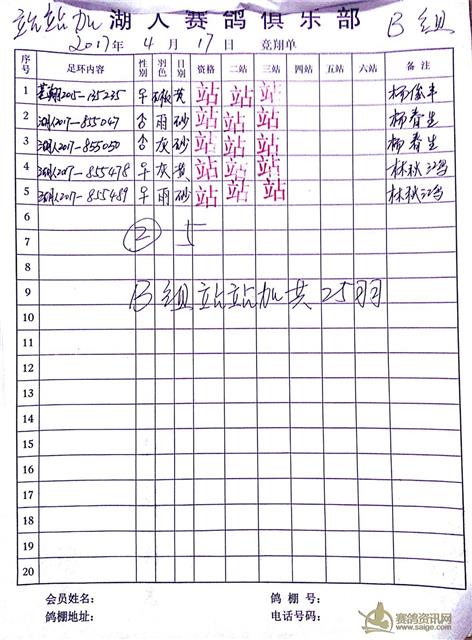 站站加 湖人赛鸽俱乐部 B组
2017年 4月 17日 竞翔单
序号 足环内容 性别 羽色 目别 资格 二站 三站 四站 五站 六站 备注
1 2005-135235 黄 站 站 站
2 湖人2017-855047 雨 砂 站 站 站 杨春生
3 湖人2017-855050 灰 砂 站 站 站 杨春生
4 湖人2017-855478 灰 黄 站 站 站 林秋鸿
5 湖人2017-855489 雨 砂 站 站 站 林秋鸿
6
7 ② 5
8
9 B组站站加共25羽
10
11
12
13
14
15
16
17
18
19
20
会员姓名: 鸽棚号:
鸽棚地址: 电话号码:
赛鸽资讯网
www.saige.com